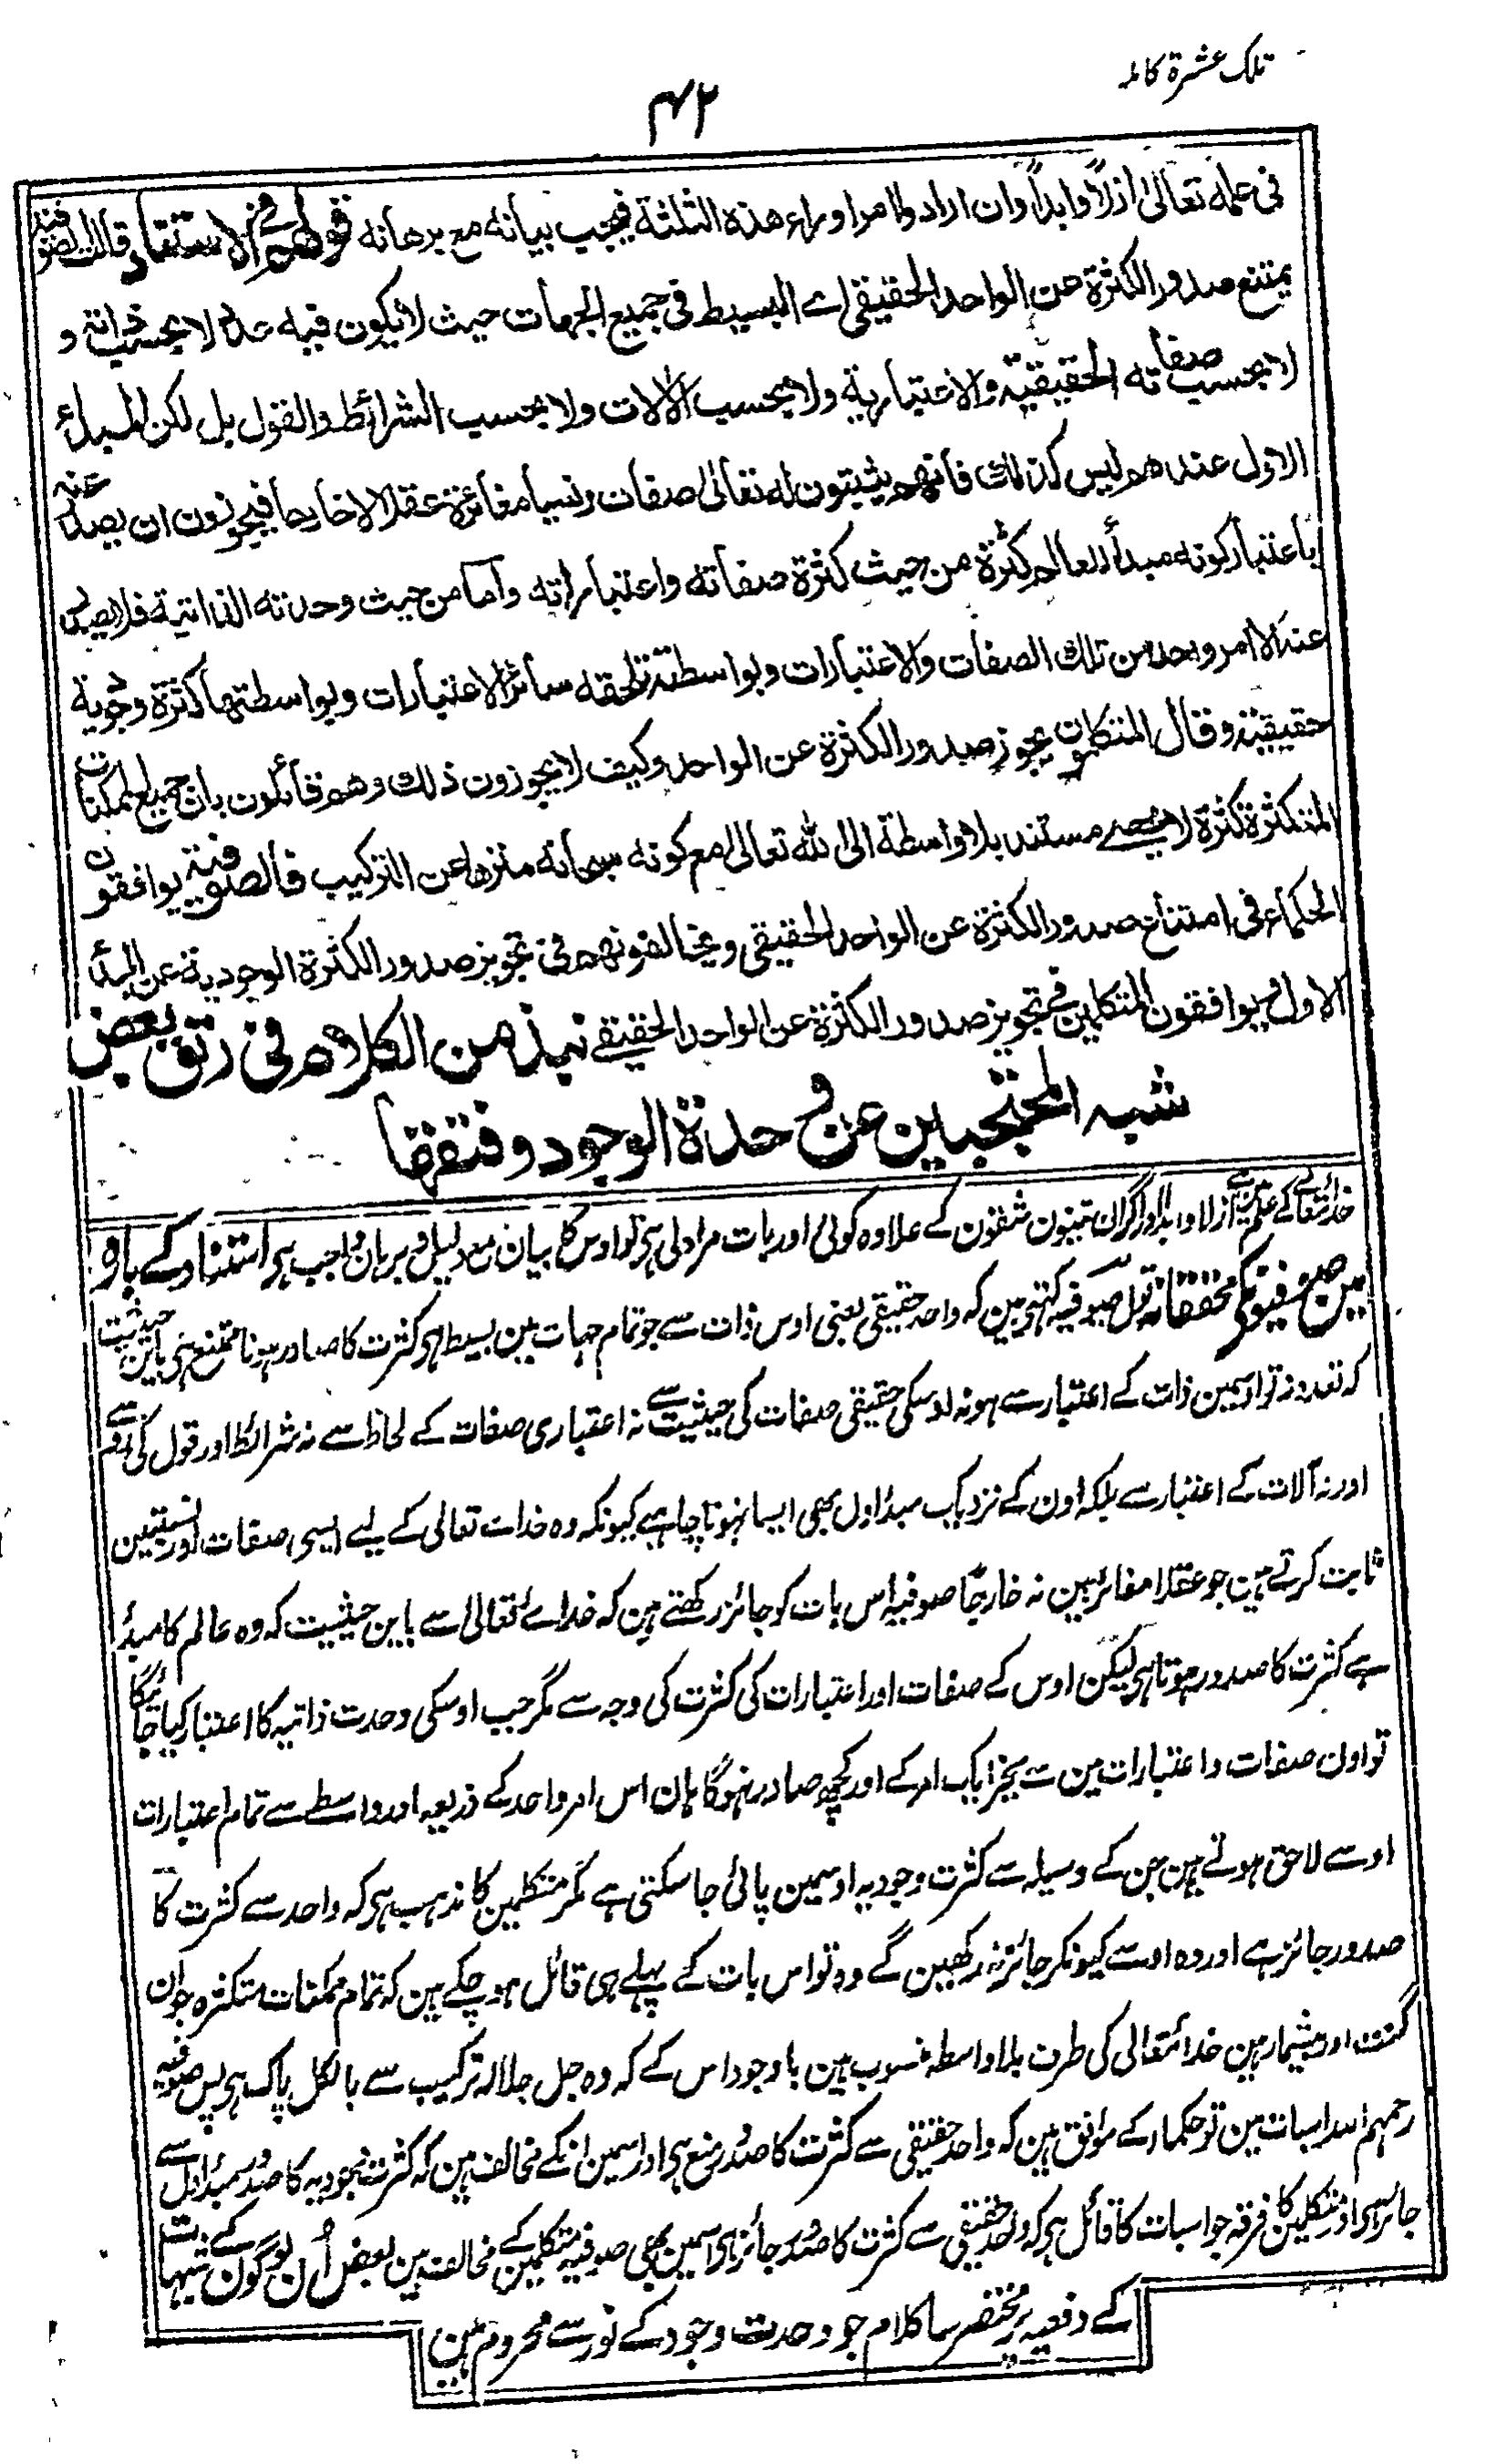 تلک عشرة کاملہ
۴۲
فی علمه تعالیٰ ازلاً وابداً وان ارادوا امرا وراء هذه الثلثة فیجب بیانه مع برهانه قولهم فی الاستناد قالت الصوفیة
یمتنع صدور الکثرة عن الواحد الحقیقی اے البسیط فی جمیع الجهات حیث لا یکون فیه لا بحسب ذاته و
لا بحسب صفاته الحقیقیة والاعتباریة ولا بحسب الآلات ولا بحسب الشرائط والقول بل لکن المبداء
الاول عندهم لیس کذلك فانهم یثبتون له تعالیٰ صفات ونسبا مغائرة عقلا لا خارجا فیجوزون ان یصدر عنه
باعتبار کونه مبدأ للعالم کثرة من حیث کثرة صفاته واعتباراته واما من حیث وحدته الذاتیة فلا یصدر
عنه الا امر وحد من تلك الصفات والاعتبارات وبواسطته تلحقه سائر الاعتبارات وبواسطتها کثرة وجودیة
حقیقیة وقال المتکلمون یجوز صدور الکثرة عن الواحد وکیف لا یجوزون ذلك وهم قائلون بان جمیع الممکنات
المتکثرة کثرة لا یحصے مستند بلا واسطة الی الله تعالیٰ مع کونه سبحانه منزها عن الترکیب فالصوفیة یوافقون
الحکماء فی امتناع صدور الکثرة عن الواحد الحقیقی ویخالفونهم فی تجویز صدور الکثرة الوجودیة عن المبدأ
الاول ویوافقون المتکلمین فی تجویز صدور الکثرة عن الواحد الحقیقے نبذ من الکلام فی رتق بعض
شبه المحتجبین عن وحدة الوجود وفتقها
خدائتعالے کے علم میں ازلا وابدا اور اگر ان تینون شقون کے علاوہ کوئی اور بات مراد لی ہی تو اوس کا بیان مع دلیل و برہان واجب ہی استناد کے بارہ
مین صوفیونکی محققانہ قول صوفیہ کہتے ہین کہ واحد حقیقی یعنی اوس ذات سے جو تمام جہات مین بسیط ہی کثرت کا صادر ہونا ممتنع ہی باین حیثیت
کہ تعدد نہ تو اوسمین ذات کے اعتبار سے ہو نہ اوسکی حقیقی صفات کی حیثیت سے نہ اعتباری صفات کے لحاظ سے نہ شرائط اور قول کی رو سے
اور نہ آلات کے اعتبار سے بلکہ اون کے نزدیک مبدؤ اول بھی ایسا نہونا چاہیے کیونکہ وہ خدات تعالی کے لیے ایسی صفات اور نسبتین
ثابت کرتے ہین جو عقلا مغائر ہین نہ خارجًا صوفیہ اس بات کو جائز رکھتے ہین کہ خداے تعالیٰ سے باین حیثیت کہ وہ عالم کا مبدؤ
ہے کثرت کا صدور ہوتا ہی لیکن اوس کے صفات اور اعتبارات کی کثرت کی وجہ سے مگر جب اوسکی وحدت ذاتیہ کا اعتبار کیا جائیگا
تو اون صفات و اعتبارات مین سے بجز ایک امر کے اور کچھ صادر نہوگا ہان اس امر واحد کے ذریعہ اور واسطے سے تمام اعتبارات
اوسے لاحق ہوتے ہین جن کے وسیلہ سے کثرت وجودیہ اوسمین پائی جا سکتی ہے مگر متکلمین کا مذہب ہی کہ واحد سے کثرت کا
صدور جائز ہے اور وہ اوسے کیونکر جائز نہ رکھین گے وہ تو اس بات کے پہلے ہی قائل ہو چکے ہین کہ تمام ممکنات متکثرہ جو ان
گنت اور بیشمار ہین خدائتعالی کی طرف بلا واسطہ منسوب ہین باوجود اس کے کہ وہ جل جلالہ ترکیب سے بالکل پاک ہی پس صوفیہ
رحمہم اللہ اسبات مین تو حکماء کے موافق ہین کہ واحد حقیقی سے کثرت کا صدور منع ہی اور اسمین انکے مخالف ہین کہ کثرت وجودیہ کا صدور مبدؤ اول سے
جائز ہی اور متکلمین کا فرقہ جو اسبات کا قائل ہی کہ واحد حقیقی سے کثرت کا صدور جائز ہی اسمین بھی صوفیہ متکلمین کے مخالف ہین بعض اُن لوگون کے شبہات
کے دفعیہ پر مختصر سا کلام جو وحدت وجود کے نور سے محروم ہین